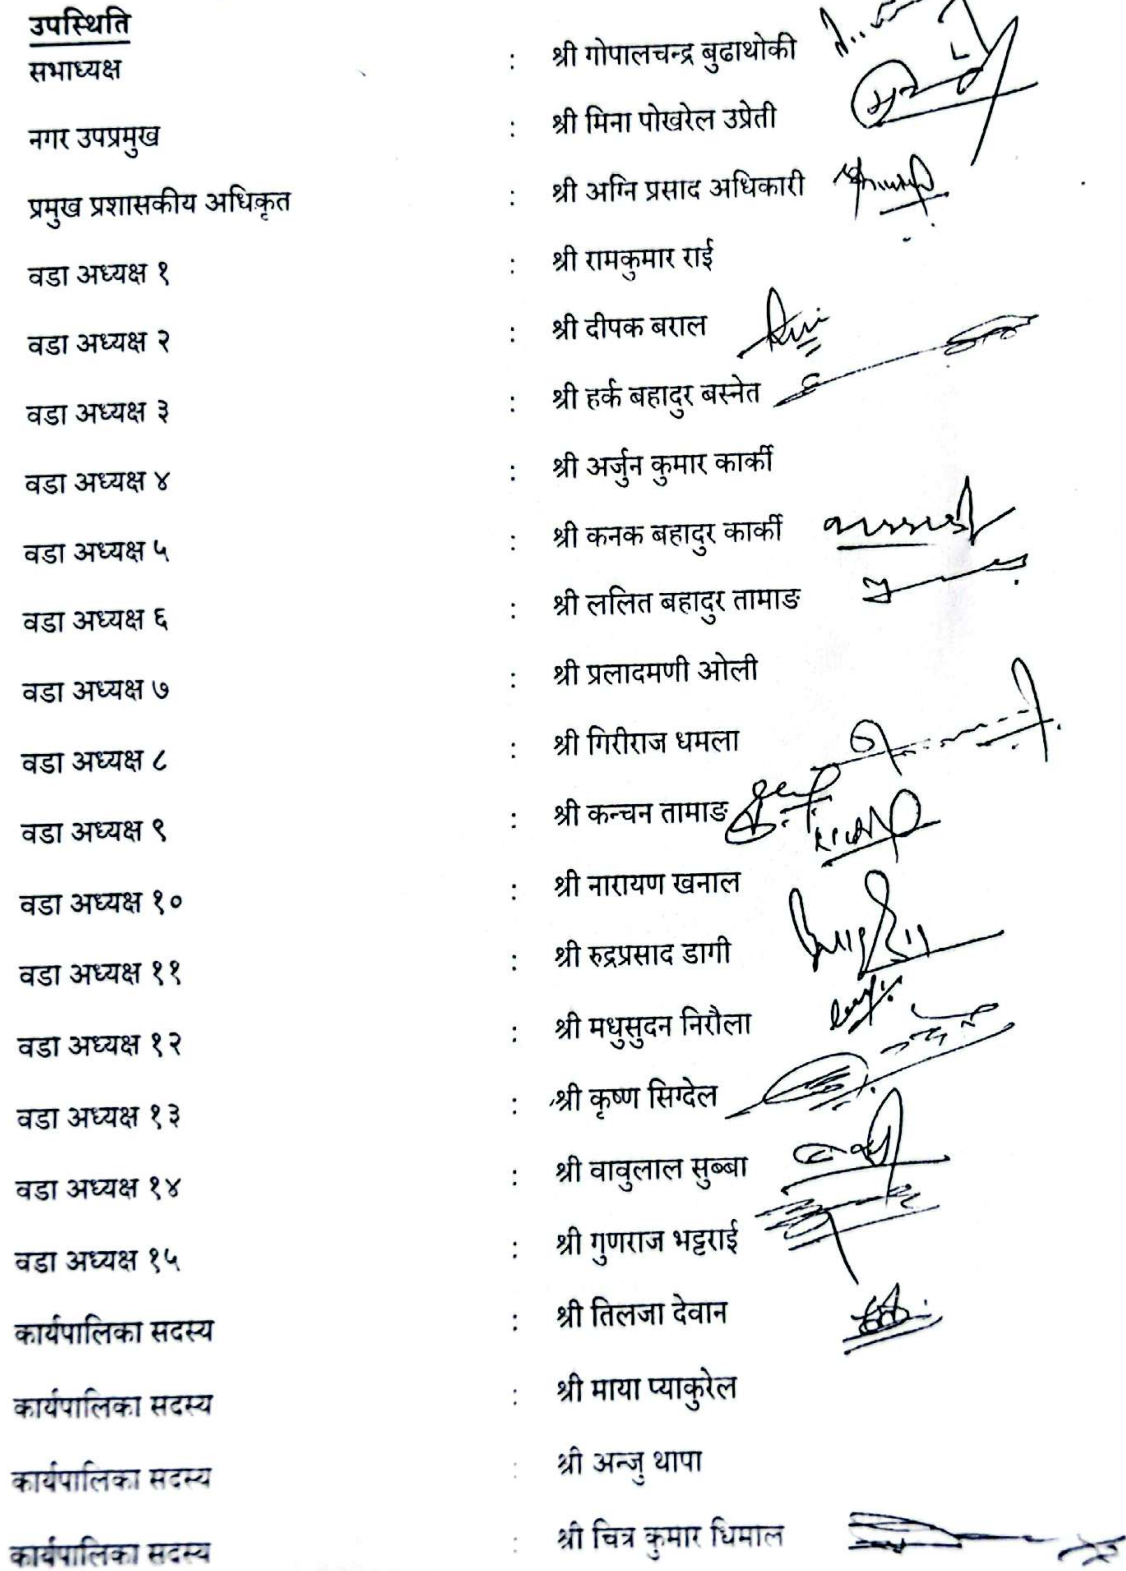 उपस्थिति
सभाध्यक्ष : श्री गोपालचन्द्र बुढाथोकी
नगर उपप्रमुख : श्री मिना पोखरेल उप्रेती
प्रमुख प्रशासकीय अधिकृत : श्री अग्नि प्रसाद अधिकारी
वडा अध्यक्ष १ : श्री रामकुमार राई
वडा अध्यक्ष २ : श्री दीपक बराल
वडा अध्यक्ष ३ : श्री हर्क बहादुर बस्नेत
वडा अध्यक्ष ४ : श्री अर्जुन कुमार कार्की
वडा अध्यक्ष ५ : श्री कनक बहादुर कार्की
वडा अध्यक्ष ६ : श्री ललित बहादुर तामाङ
वडा अध्यक्ष ७ : श्री प्रलादमणी ओली
वडा अध्यक्ष ८ : श्री गिरीराज धमला
वडा अध्यक्ष ९ : श्री कन्चन तामाङ
वडा अध्यक्ष १० : श्री नारायण खनाल
वडा अध्यक्ष ११ : श्री रुद्रप्रसाद डागी
वडा अध्यक्ष १२ : श्री मधुसुदन निरौला
वडा अध्यक्ष १३ : श्री कृष्ण सिग्देल
वडा अध्यक्ष १४ : श्री वावुलाल सुब्बा
वडा अध्यक्ष १५ : श्री गुणराज भट्टराई
कार्यपालिका सदस्य : श्री तिलजा देवान
कार्यपालिका सदस्य : श्री माया प्याकुरेल
कार्यपालिका सदस्य : श्री अन्जु थापा
कार्यपालिका सदस्य : श्री चित्र कुमार धिमाल